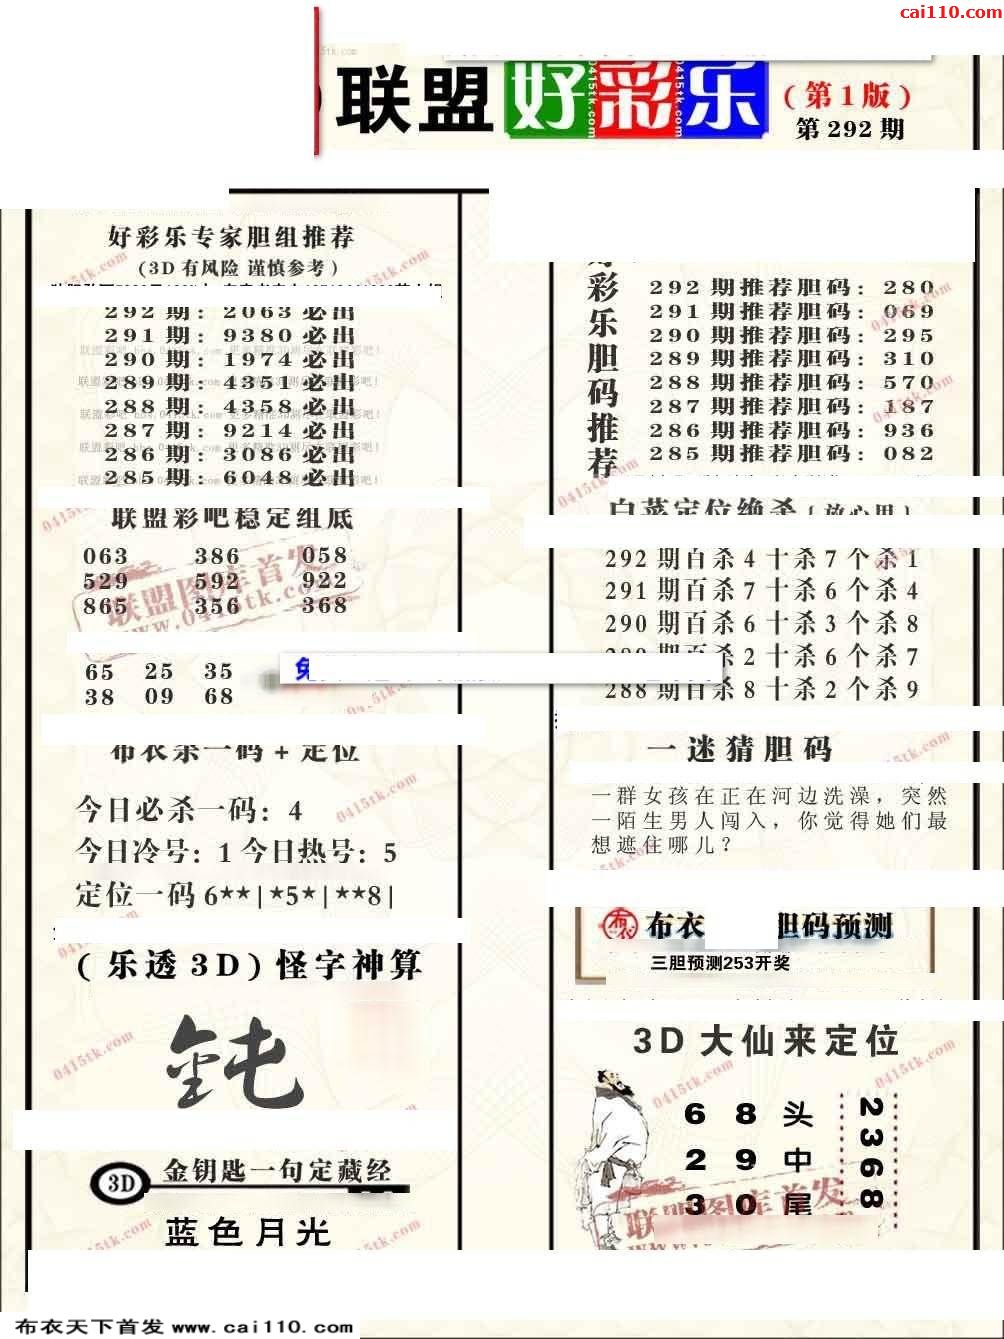 cai110.com
联盟好彩乐
(第1版)
第292期
好彩乐专家胆组推荐
(3D有风险 谨慎参考)
292期: 2063必出
291期: 9380必出
290期: 1974必出
289期: 4351必出
288期: 4358必出
287期: 9214必出
286期: 3086必出
285期: 6048必出
联盟彩吧稳定组底
063 386 058
529 592 922
865 356 368
65 25 35
38 09 68
布衣杀一码+定位
今日必杀一码: 4
今日冷号: 1 今日热号: 5
定位一码6**|*5*|**8|
(乐透3D)怪字神算
钝
3D 金钥匙一句定藏经
蓝色月光
好彩乐胆码推荐
292期推荐胆码: 280
291期推荐胆码: 069
290期推荐胆码: 295
289期推荐胆码: 310
288期推荐胆码: 570
287期推荐胆码: 187
286期推荐胆码: 936
285期推荐胆码: 082
白菜定位绝杀
292期百杀4十杀7个杀1
291期百杀7十杀6个杀4
290期百杀6十杀3个杀8
杀2十杀6个杀7
288期百杀8十杀2个杀9
一迷猜胆码
一群女孩在正在河边洗澡，突然
一陌生男人闯入，你觉得她们最
想遮住哪儿？
布衣 胆码预测
三胆预测253开奖
3D大仙来定位
6 8 头
2 9 中
3 0 尾
2368
联盟图库首发
www.0415tk.com
0415tk.com
布衣天下首发 www.cai110.com